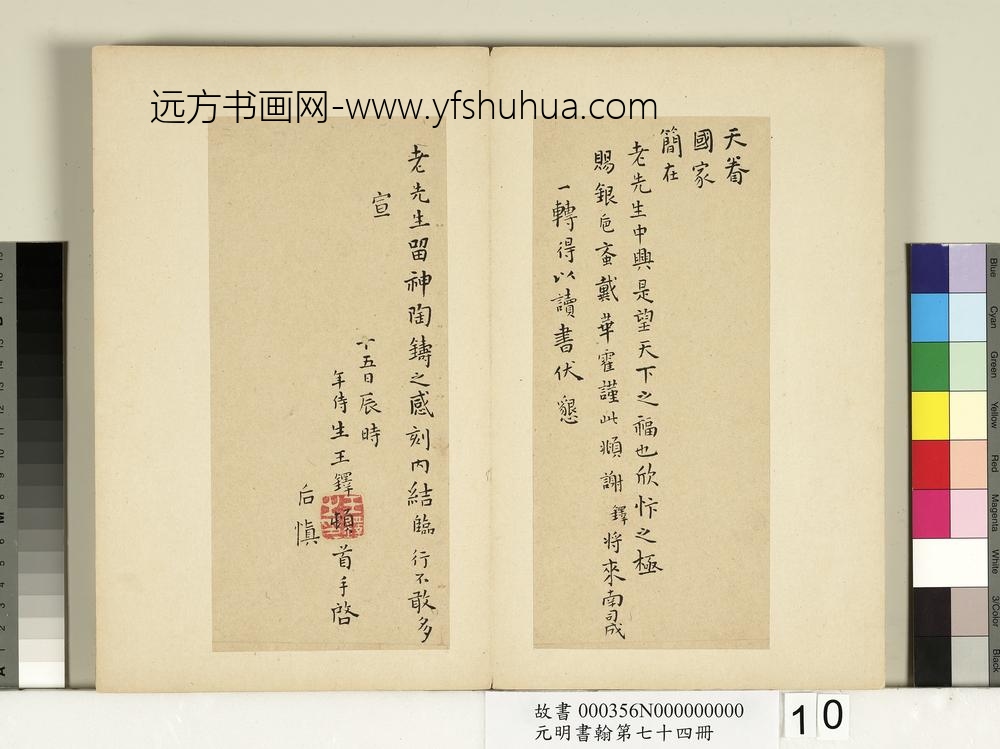 远方书画网-www.yfshuhua.com
天眷
國家
簡在
老先生中興是望天下之福也欣忭之極
賜銀卮斎戴華霍謹此頫謝鐸將來南司成
一轉得以讀書伏懇
老先生留神陶鑄之感刻内結臨行不敢多
宣
十五日辰時
年侍生王鐸頓首手啓
后慎
故書 000356N000000000
元明書翰第七十四冊
10
Blue
Cyan
Green
Yellow
Red
Magenta
White
3/Color
Black